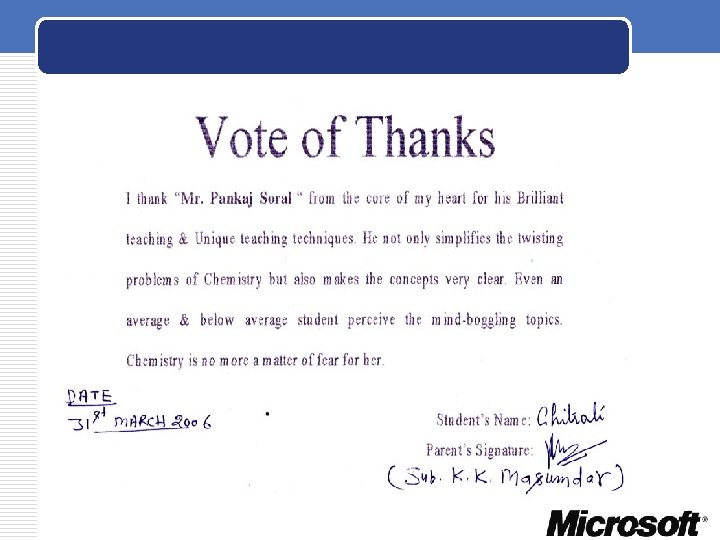 Vote of Thanks
I thank “Mr. Pankaj Soral “ from the core of my heart for his Brilliant
teaching & Unique teaching techniques. He not only simplifies the twisting
problems of Chemistry but also makes the concepts very clear. Even an
average & below average student perceive the mind-boggling topics.
Chemistry is no more a matter of fear for her.
DATE
31st MARCH 2006
Student's Name: Chitrali
Parent's Signature:
(Sub. K. K. Majumdar)
Microsoft®